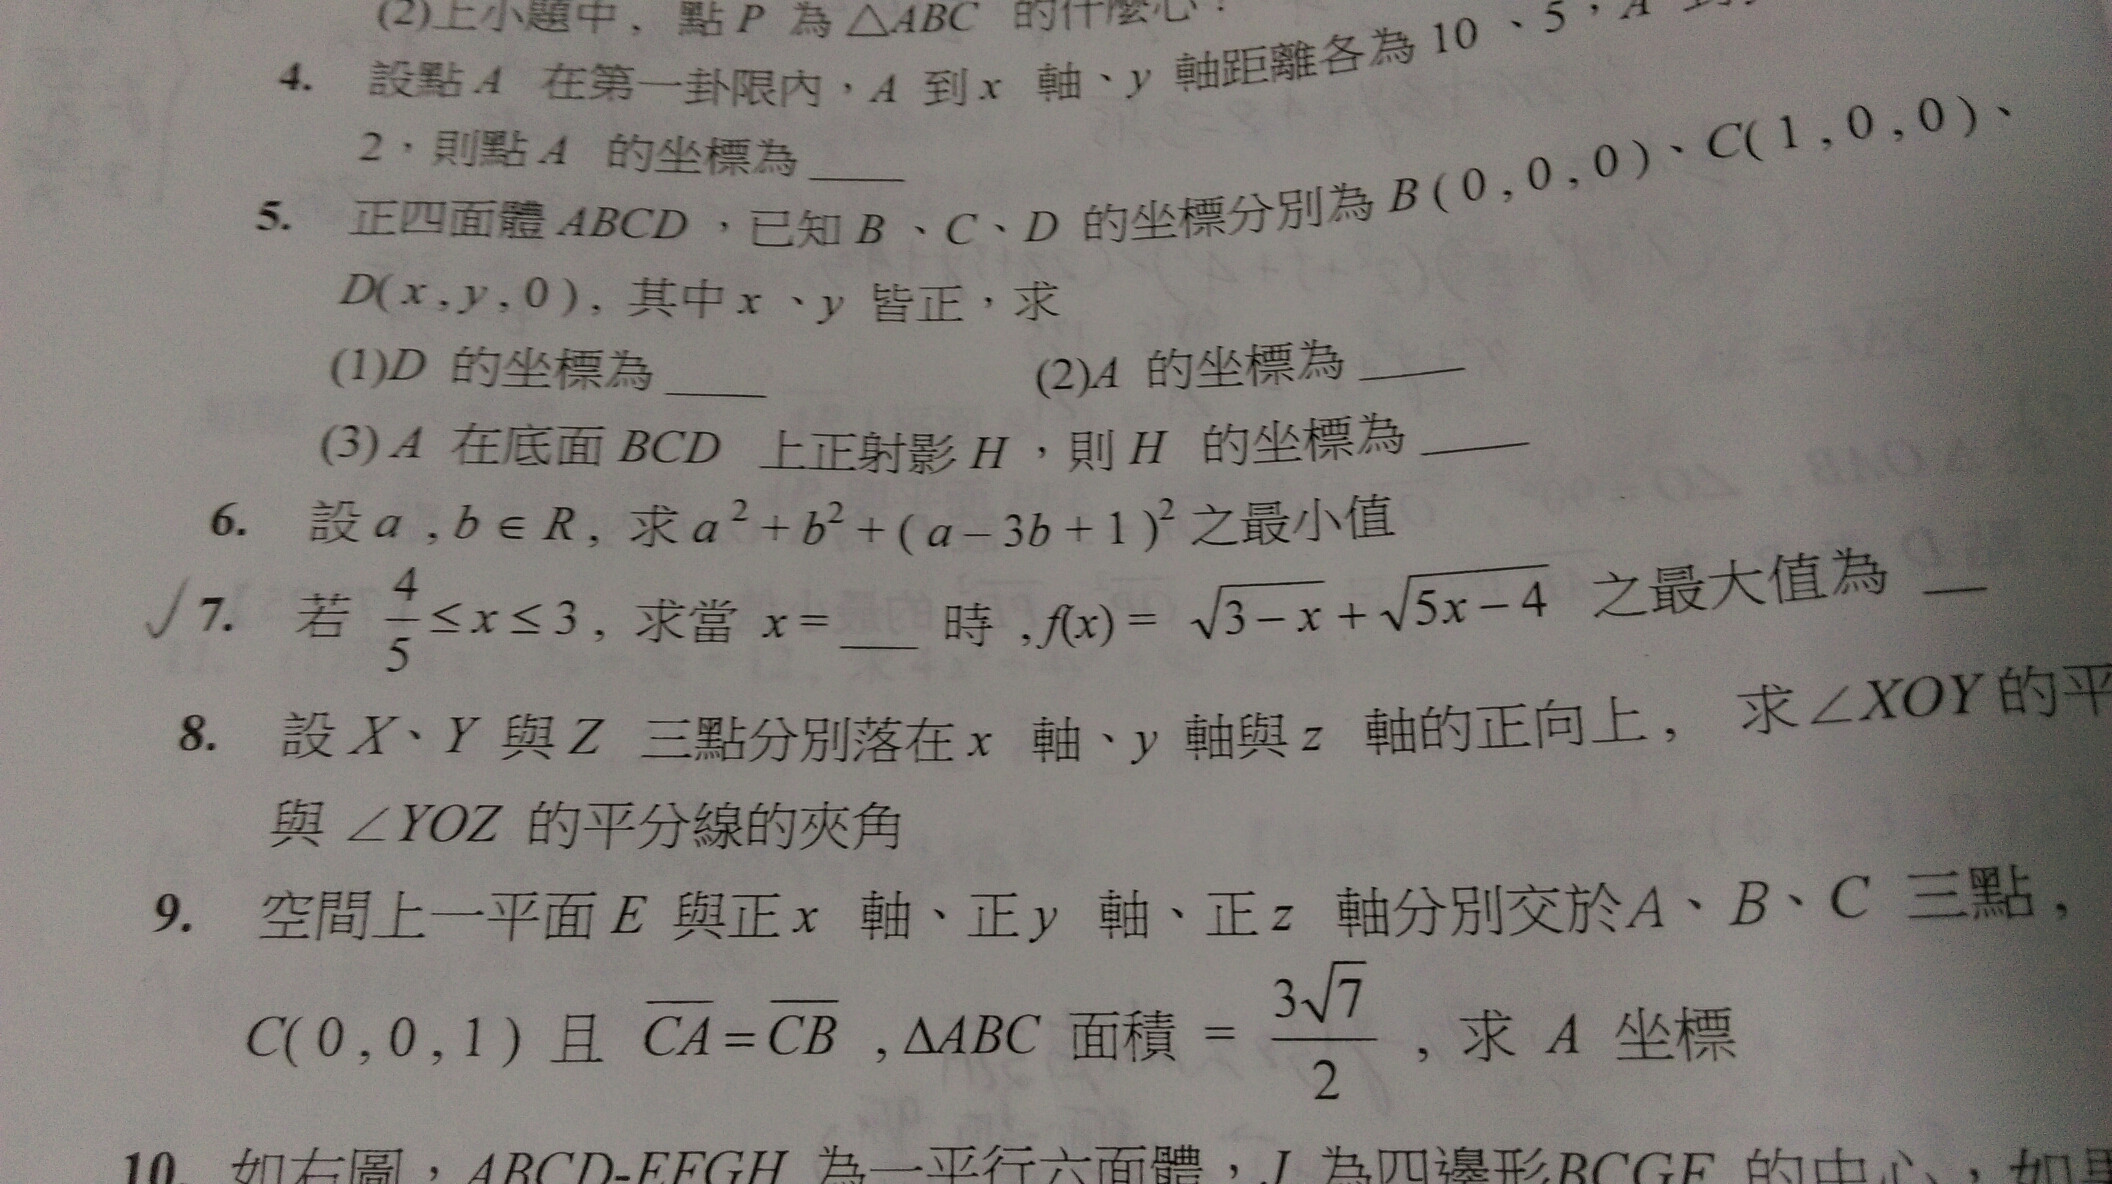 (2)上小題中, 點 P 為 △ABC 的什麼心?
4. 設點 A 在第一卦限內，A 到 x 軸、y 軸距離各為 10、5，A 到
2，則點 A 的坐標為 ____
5. 正四面體 ABCD，已知 B、C、D 的坐標分別為 B(0,0,0)、C(1,0,0)、
D(x,y,0), 其中 x、y 皆正，求
(1)D 的坐標為 ____ (2)A 的坐標為 ____
(3)A 在底面 BCD 上正射影 H，則 H 的坐標為 ____
6. 設 a ,b ∈ R, 求 a² + b² + ( a – 3b + 1 )² 之最小值
7. 若 4/5 ≤ x ≤ 3, 求當 x = ___ 時 ,f(x) = √(3 – x) + √(5x – 4) 之最大值為 __
8. 設 X、Y 與 Z 三點分別落在 x 軸、y 軸與 z 軸的正向上, 求 ∠XOY 的平
與 ∠YOZ 的平分線的夾角
9. 空間上一平面 E 與正 x 軸、正 y 軸、正 z 軸分別交於 A、B、C 三點,
C(0,0,1) 且 C̅A̅ = C̅B̅ , ΔABC 面積 = 3√7/2 , 求 A 坐標
10. 如右圖，ABCD-EFGH 為一平行六面體，J 為四邊形 BCGF 的中心，如果